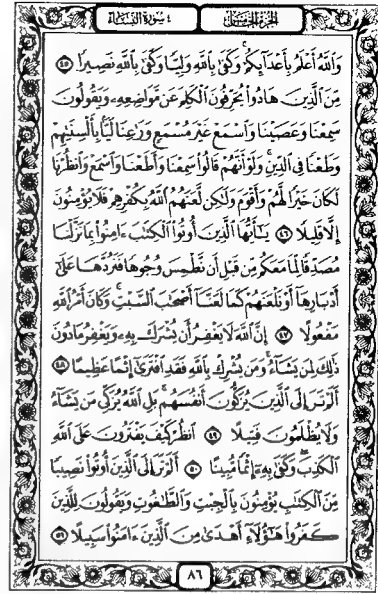 الجزء الخامس ٤ سورة النساء
وَاللَّهُ أَعْلَمُ بِأَعْدَائِكُمْ ۚ وَكَفَىٰ بِاللَّهِ وَلِيًّا وَكَفَىٰ بِاللَّهِ نَصِيرًا ٤٥
مِنَ الَّذِينَ هَادُوا يُحَرِّفُونَ الْكَلِمَ عَن مَّوَاضِعِهِ وَيَقُولُونَ
سَمِعْنَا وَعَصَيْنَا وَاسْمَعْ غَيْرَ مُسْمَعٍ وَرَاعِنَا لَيًّا بِأَلْسِنَتِهِمْ
وَطَعْنًا فِي الدِّينِ ۚ وَلَوْ أَنَّهُمْ قَالُوا سَمِعْنَا وَأَطَعْنَا وَاسْمَعْ وَانظُرْنَا
لَكَانَ خَيْرًا لَّهُمْ وَأَقْوَمَ وَلَٰكِن لَّعَنَهُمُ اللَّهُ بِكُفْرِهِمْ فَلَا يُؤْمِنُونَ
إِلَّا قَلِيلًا ٤٦ يَا أَيُّهَا الَّذِينَ أُوتُوا الْكِتَابَ آمِنُوا بِمَا نَزَّلْنَا
مُصَدِّقًا لِّمَا مَعَكُم مِّن قَبْلِ أَن نَّطْمِسَ وُجُوهًا فَنَرُدَّهَا عَلَىٰ
أَدْبَارِهَا أَوْ نَلْعَنَهُمْ كَمَا لَعَنَّا أَصْحَابَ السَّبْتِ ۚ وَكَانَ أَمْرُ اللَّهِ
مَفْعُولًا ٤٧ إِنَّ اللَّهَ لَا يَغْفِرُ أَن يُشْرَكَ بِهِ وَيَغْفِرُ مَا دُونَ
ذَٰلِكَ لِمَن يَشَاءُ ۚ وَمَن يُشْرِكْ بِاللَّهِ فَقَدِ افْتَرَىٰ إِثْمًا عَظِيمًا ٤٨
أَلَمْ تَرَ إِلَى الَّذِينَ يُزَكُّونَ أَنفُسَهُم ۚ بَلِ اللَّهُ يُزَكِّي مَن يَشَاءُ
وَلَا يُظْلَمُونَ فَتِيلًا ٤٩ انظُرْ كَيْفَ يَفْتَرُونَ عَلَى اللَّهِ
الْكَذِبَ ۖ وَكَفَىٰ بِهِ إِثْمًا مُّبِينًا ٥٠ أَلَمْ تَرَ إِلَى الَّذِينَ أُوتُوا نَصِيبًا
مِّنَ الْكِتَابِ يُؤْمِنُونَ بِالْجِبْتِ وَالطَّاغُوتِ وَيَقُولُونَ لِلَّذِينَ
كَفَرُوا هَٰؤُلَاءِ أَهْدَىٰ مِنَ الَّذِينَ آمَنُوا سَبِيلًا ٥١
٨٦